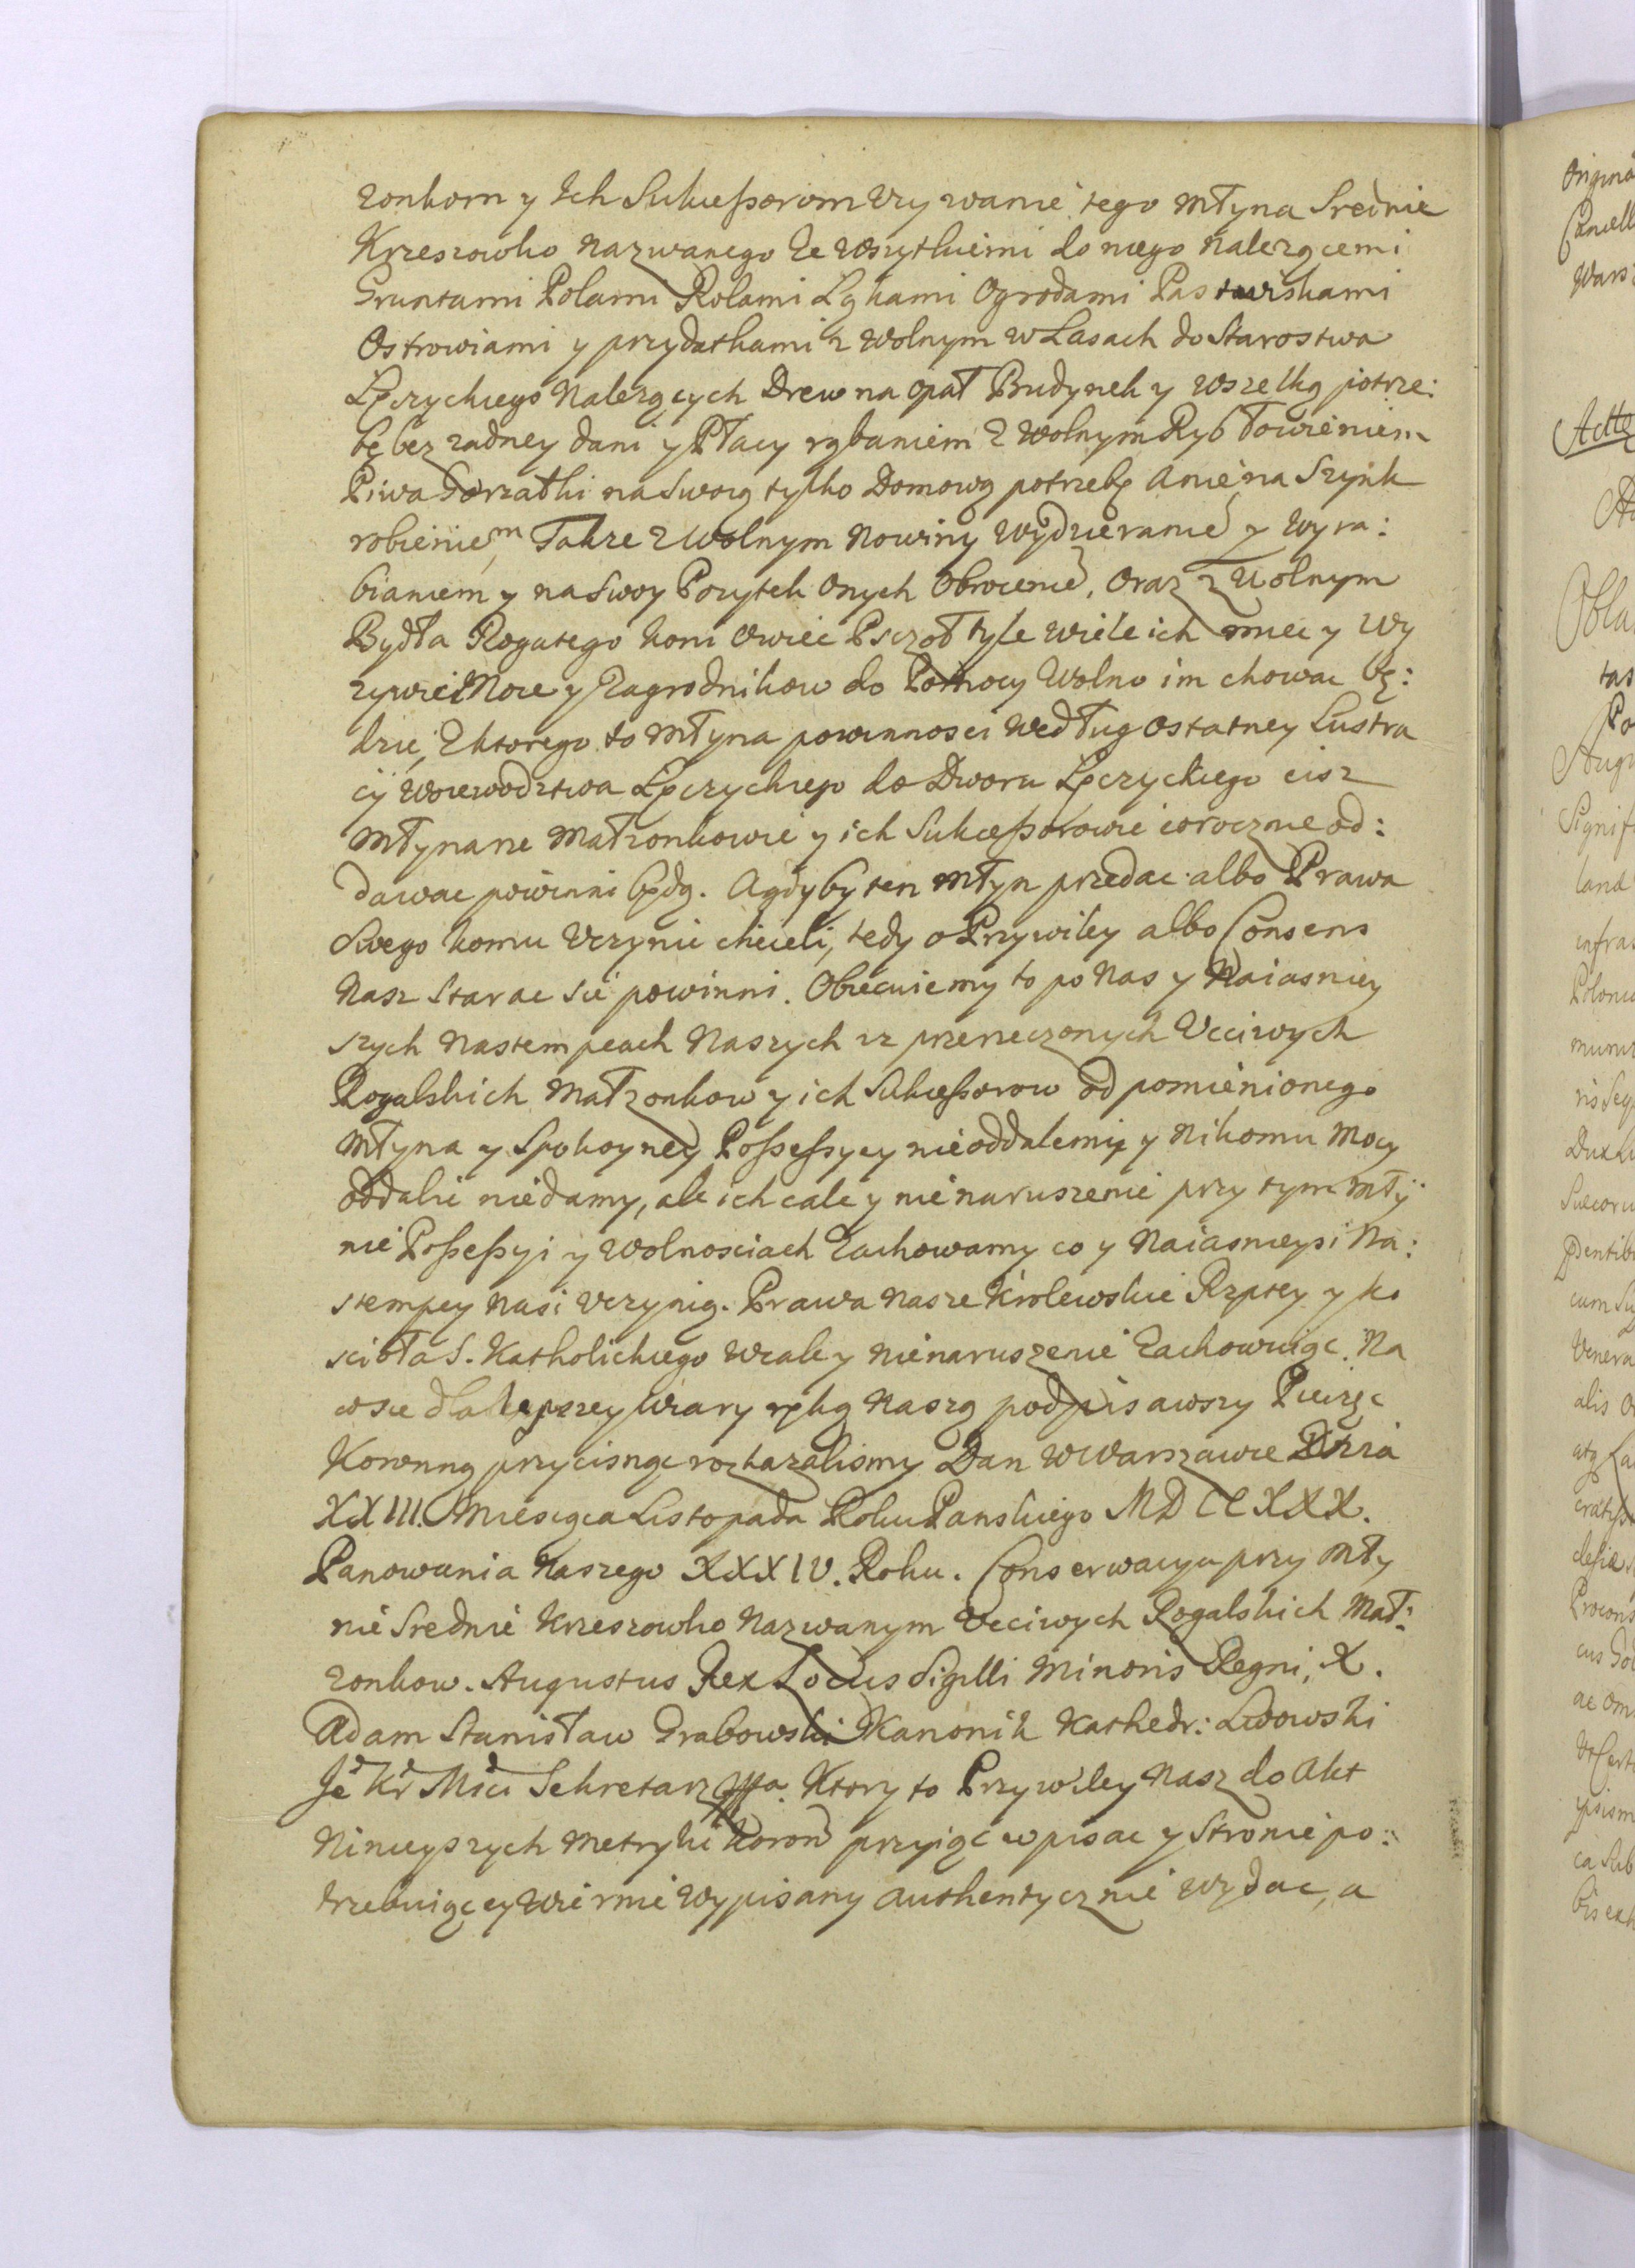 zonkom y Ich Sukceßorom Uzywanie tego Młyna Srednie
Krzeszowko Nazwanego Ze wszytkiemi do niego Nalezącemi
Gruntami Polami Rolami Ląkami Ogrodami Pastwiskami
Ostrowiami y przydatkami z Wolnym w Lasach do Starostwa
Łęczyckiego Nalezących Drew na opał Budynek y wszelką potrze:
bę bez zadney dani y Płacy rąbaniem Z Wolnym Ryb Łowieniem
Piwa Gorzałki na Swoią tylko Domową potrzebę a nie na Szynk
robieniem, Takze z Wolnym Nowiny Wydzieranie y Wyra:
bianiem y na Swoy Pozytek Onych Obrocenie, Oraz z Wolnym
Bydła Rogatego koni Owiec Psczoł tyle wiele ich miec y Wy
zywic Moze y Zagrodnikow do Pomocy Wolno im chowac bę:
dzie, Z ktorego to Młyna powinnosci według Ostatney Lustra
cÿ Woiewodztwa Łęczyckiego do Dworu Łęczyckiego cisz
Młynarze Małzonkowie y ich Sukceßorowie corocznie od:
dawac powinni będą. A gdyby ten Młyn przedac albo Prawa
Swego komu Uczynic chcieli, tedy o Przywiley albo Consens
Nasz Starac sie powinni. Obiecuiemy to po Nas y Naiasniey
szych Nastempcach Naszych iz przerzeczonych Uczciwych
Rogalskich Małzonkow y ich Sukceßorow od pomienionego
Młyna y Spokoyney Poßeßyey nieoddalemy y Nikomu Mocy
oddalic niedamy, ale ich cale y nienaruszenie przy tym Mły
nie Poßeßyi y Wolnosciach Zachowamy co y Naiasnieysi Na:
stempcy Nasi Uczynią. Prawa Nasze Krolewskie Rzptey y ko
scioła S. Katholickiego Wcale y Nienaruszenie Zachowuiąc. Na
co sie dla lepszey Wiary ręką Naszą podpisawszy Pieczęc
Koronną przycisnąc rozkazalismy Dan w Warszawie Dnia
XXIII. Miesiąca Listopada Roku Panskiego MDCCXXX.
Panowania Naszego XXXIV. Roku. Conserwacya przy Mły
nie Srednie Krzeszowko Nazwanym Uczciwych Rogalskich Mał:
zonkow. Augustus Rex Locus Sigilli Minoris Regni, X.
Adam Stanisław Grabowski Kanonik Kathedr: Lwowski
Je Kr Mści Sekretarz Ktory to Przywiley Nasz do Akt
Ninieyszych Metryki Koron przyiąc wpisac y Stronie po:
trzebuiącey Wiernie Wypisany authentycznie Wydac, a